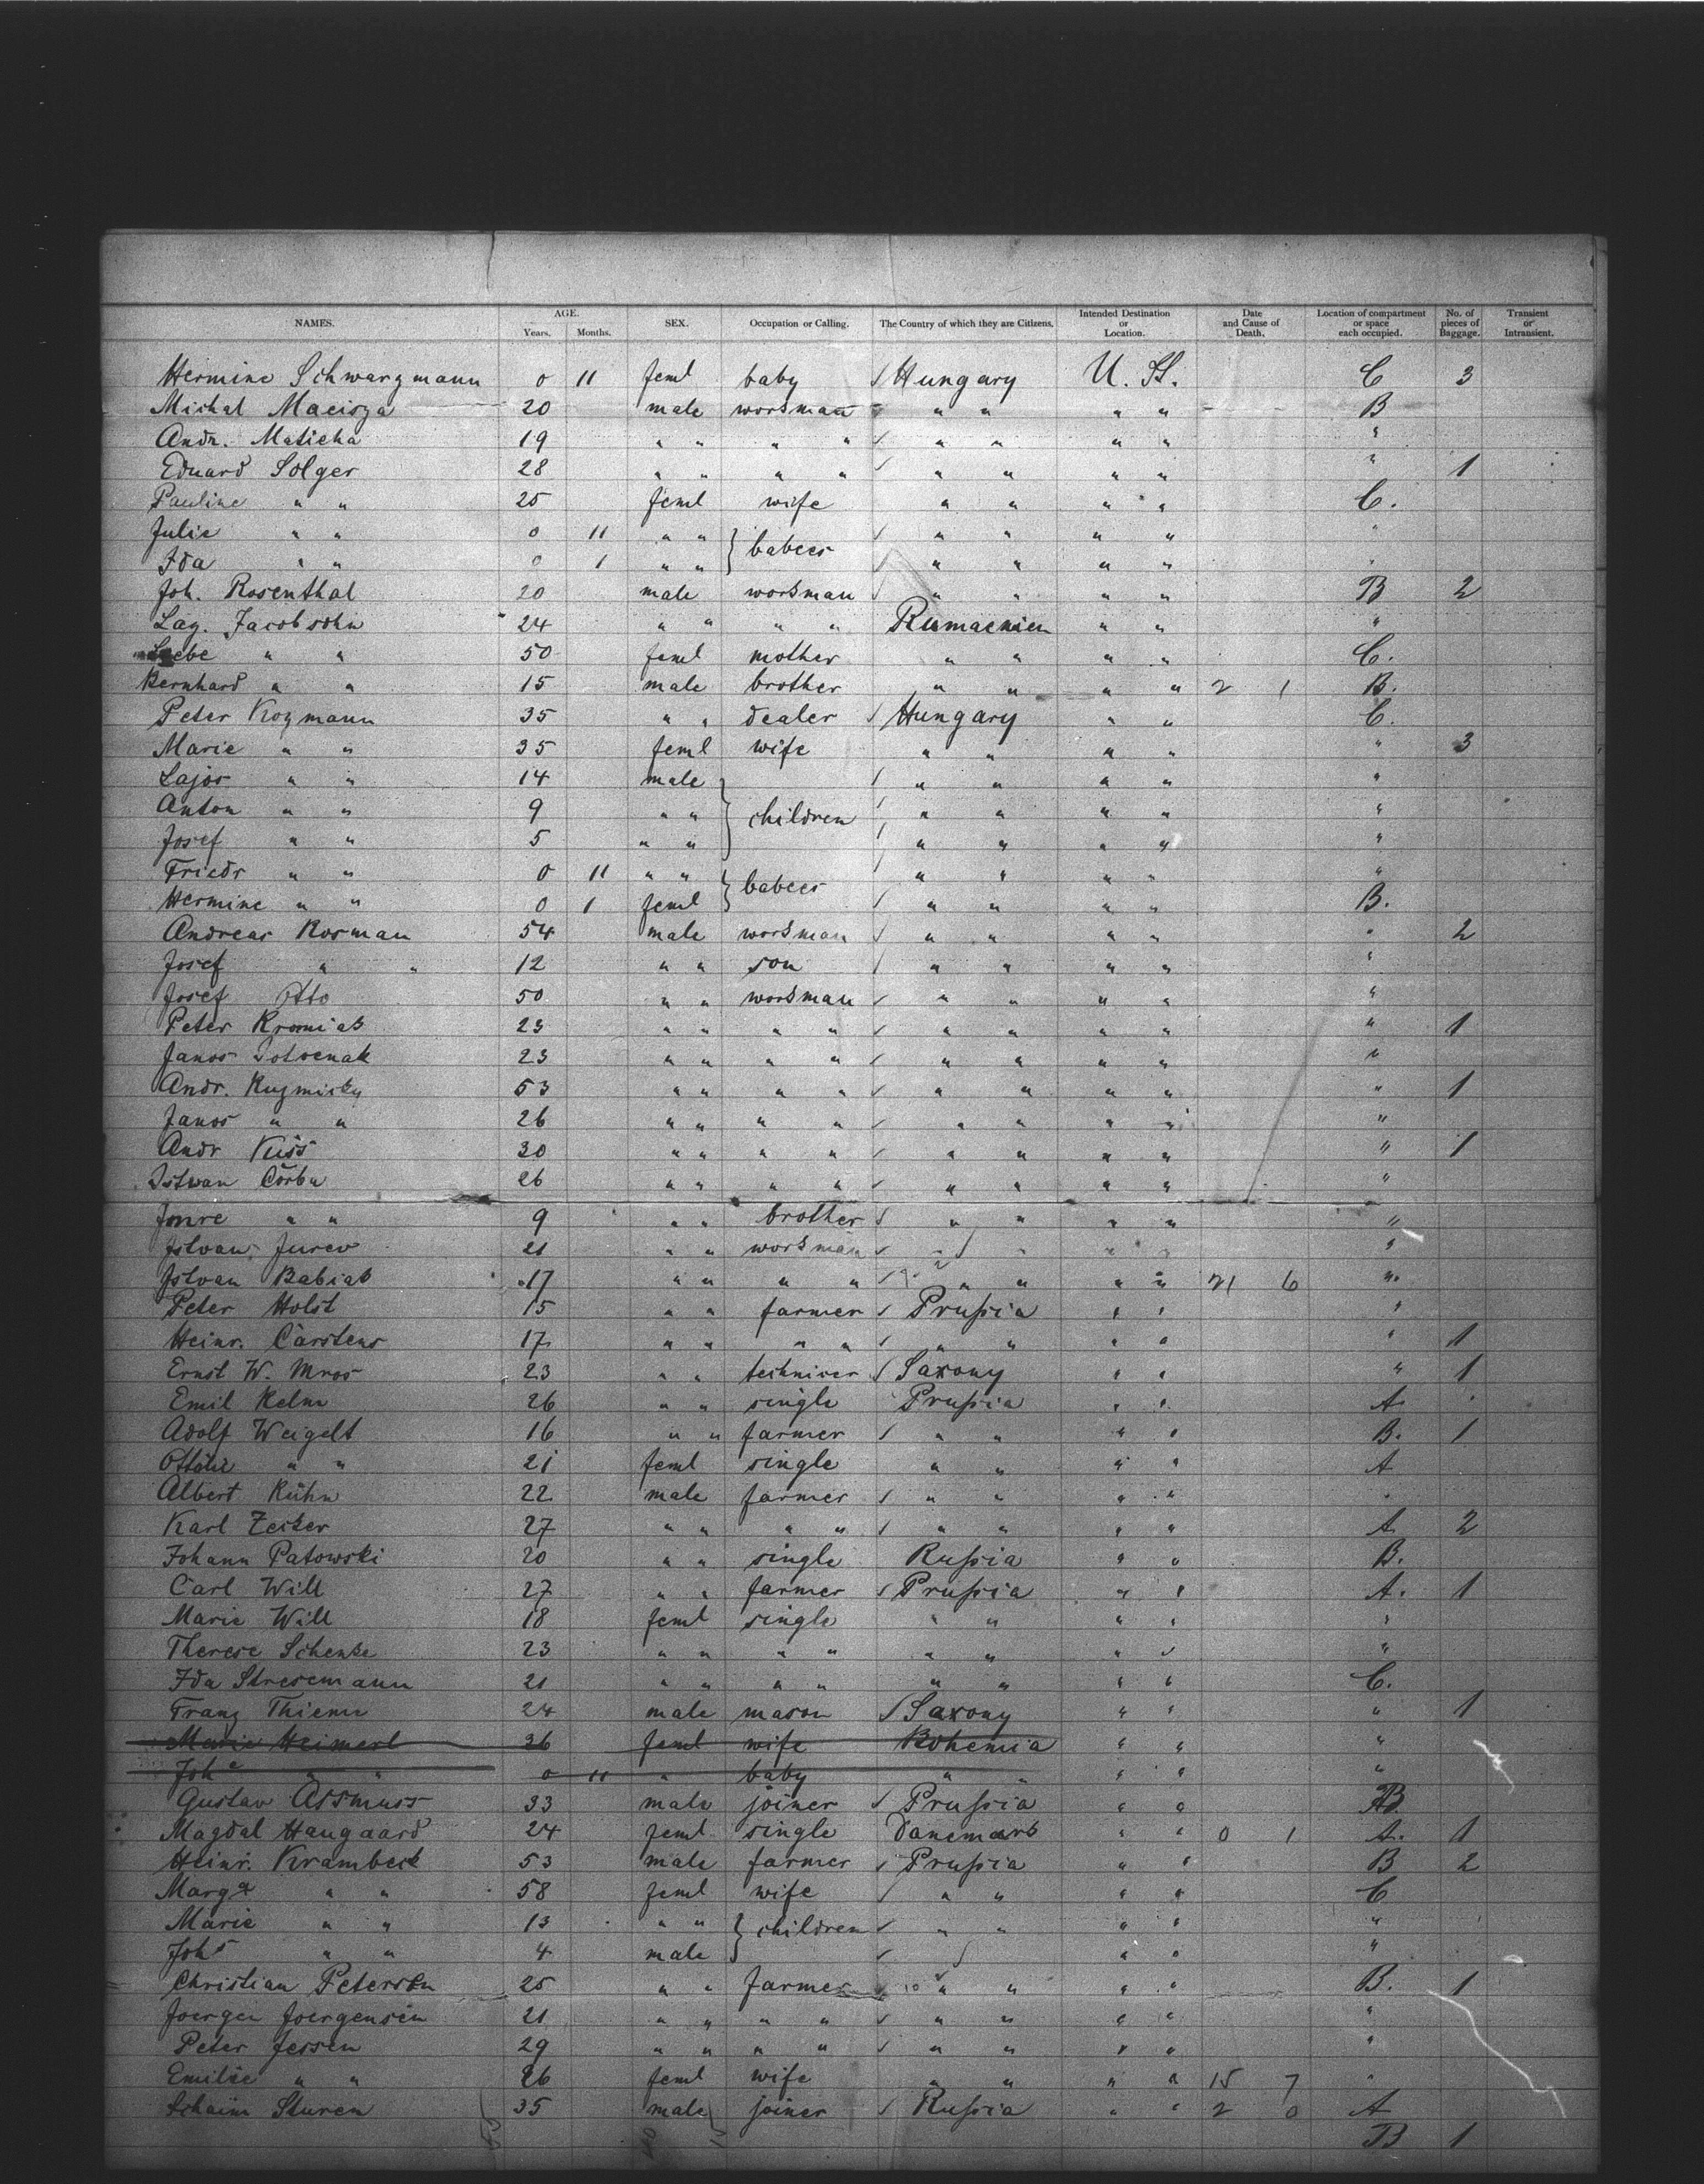 NAMES. AGE. Years. Months. SEX. Occupation or Calling. The Country of which they are Citizens. Intended Destination or Location. Date and Cause of Death. Location of compartment or space each occupied. No. of pieces of Baggage. Transient or Intransient.
Hermine Schwarzmann 0 11 feml baby Hungary U. St. C 3
Michal Macisza 20 male workman " " " " B
Andr. Maticha 19 " " " " " " " " "
Eduard Solger 28 " " " " " " " " " 1
Pauline " " 25 feml wife " " " " C.
Julie " " 0 11 " " babees " " " " "
Ida " " 0 1 " " " " " " "
Joh. Rosenthal 20 male workman " " " " B 2
Laz. Jacobsohn 24 " " " " Rumaenien " " "
" " 50 feml mother " " " " C.
Bernhard " " 15 male brother " " " " 2 1 B.
Peter Kozmann 35 " " dealer Hungary " " C.
Marie " " 35 feml wife " " " " " 3
Lajos " " 14 male " " " " "
Anton " " 9 " " children " " " " "
Josef " " 5 " " " " " " "
Friedr " " 0 11 " " babees " " " " "
Hermine " " 0 1 feml " " " " B.
Andreas Kosman 54 male workman " " " " " 2
Josef " " 12 " " son " " " " "
Josef Otto 50 " " workman " " " " "
Peter Kromiak 23 " " " " " " " " " 1
Janos 23 " " " " " " " " "
Andr. Kuzmisky 53 " " " " " " " " " 1
Janos " " 26 " " " " " " " " "
Andr Kiss 30 " " " " " " " " " 1
Istwan Corba 26 " " " " " " " " "
" " 9 " " brother " " " " "
Istvan Jurev 21 " " workman " " " " "
Istvan Babiak 17 " " " " " " " " 21 6 "
Peter Holst 15 " " farmer Prussia " " "
Heinr. Carstens 17 " " " " " " " " " 1
Ernst W. Mros 23 " " techniker Saxony " " " 1
Emil Kelm 26 " " single Prussia " " A
Adolf Weigelt 16 " " farmer " " " " B. 1
Ottilie " " 21 feml single " " " " A
Albert Kühn 22 male farmer " " " " "
Karl Zeiker 27 " " " " " " " " A 2
Johann Patowski 20 " " single Russia " " B.
Carl Will 27 " " farmer Prussia " " A. 1
Marie Will 18 feml single " " " " "
Therese Schenke 23 " " " " " " " " "
Ida Stresemann 21 " " " " " " " " C.
Franz Thieme 24 male mason Saxony " " " 1
Marie Heimerl 36 feml wife Bohemia " " "
Johe " " 0 11 " baby " " " " "
Gustav Assmuss 33 male joiner Prussia " " B
Magdal Haugaard 24 feml single Danemark " " 0 1 A. 1
Heinr. Krambeck 53 male farmer Prussia " " B 2
Marga " " 58 feml wife " " " " C
Marie " " 13 " " children " " " " "
Johs " " 4 male " " "
Christian Petersen 25 " " farmer " " " " B. 1
Joergen Joergensen 21 " " " " " " " " "
Peter Jessen 29 " " " " " " " " "
Emilie " " 26 feml wife " " " " 15 7 "
Schaim Sturem 35 male joiner Russia " " 2 0 A
B 1